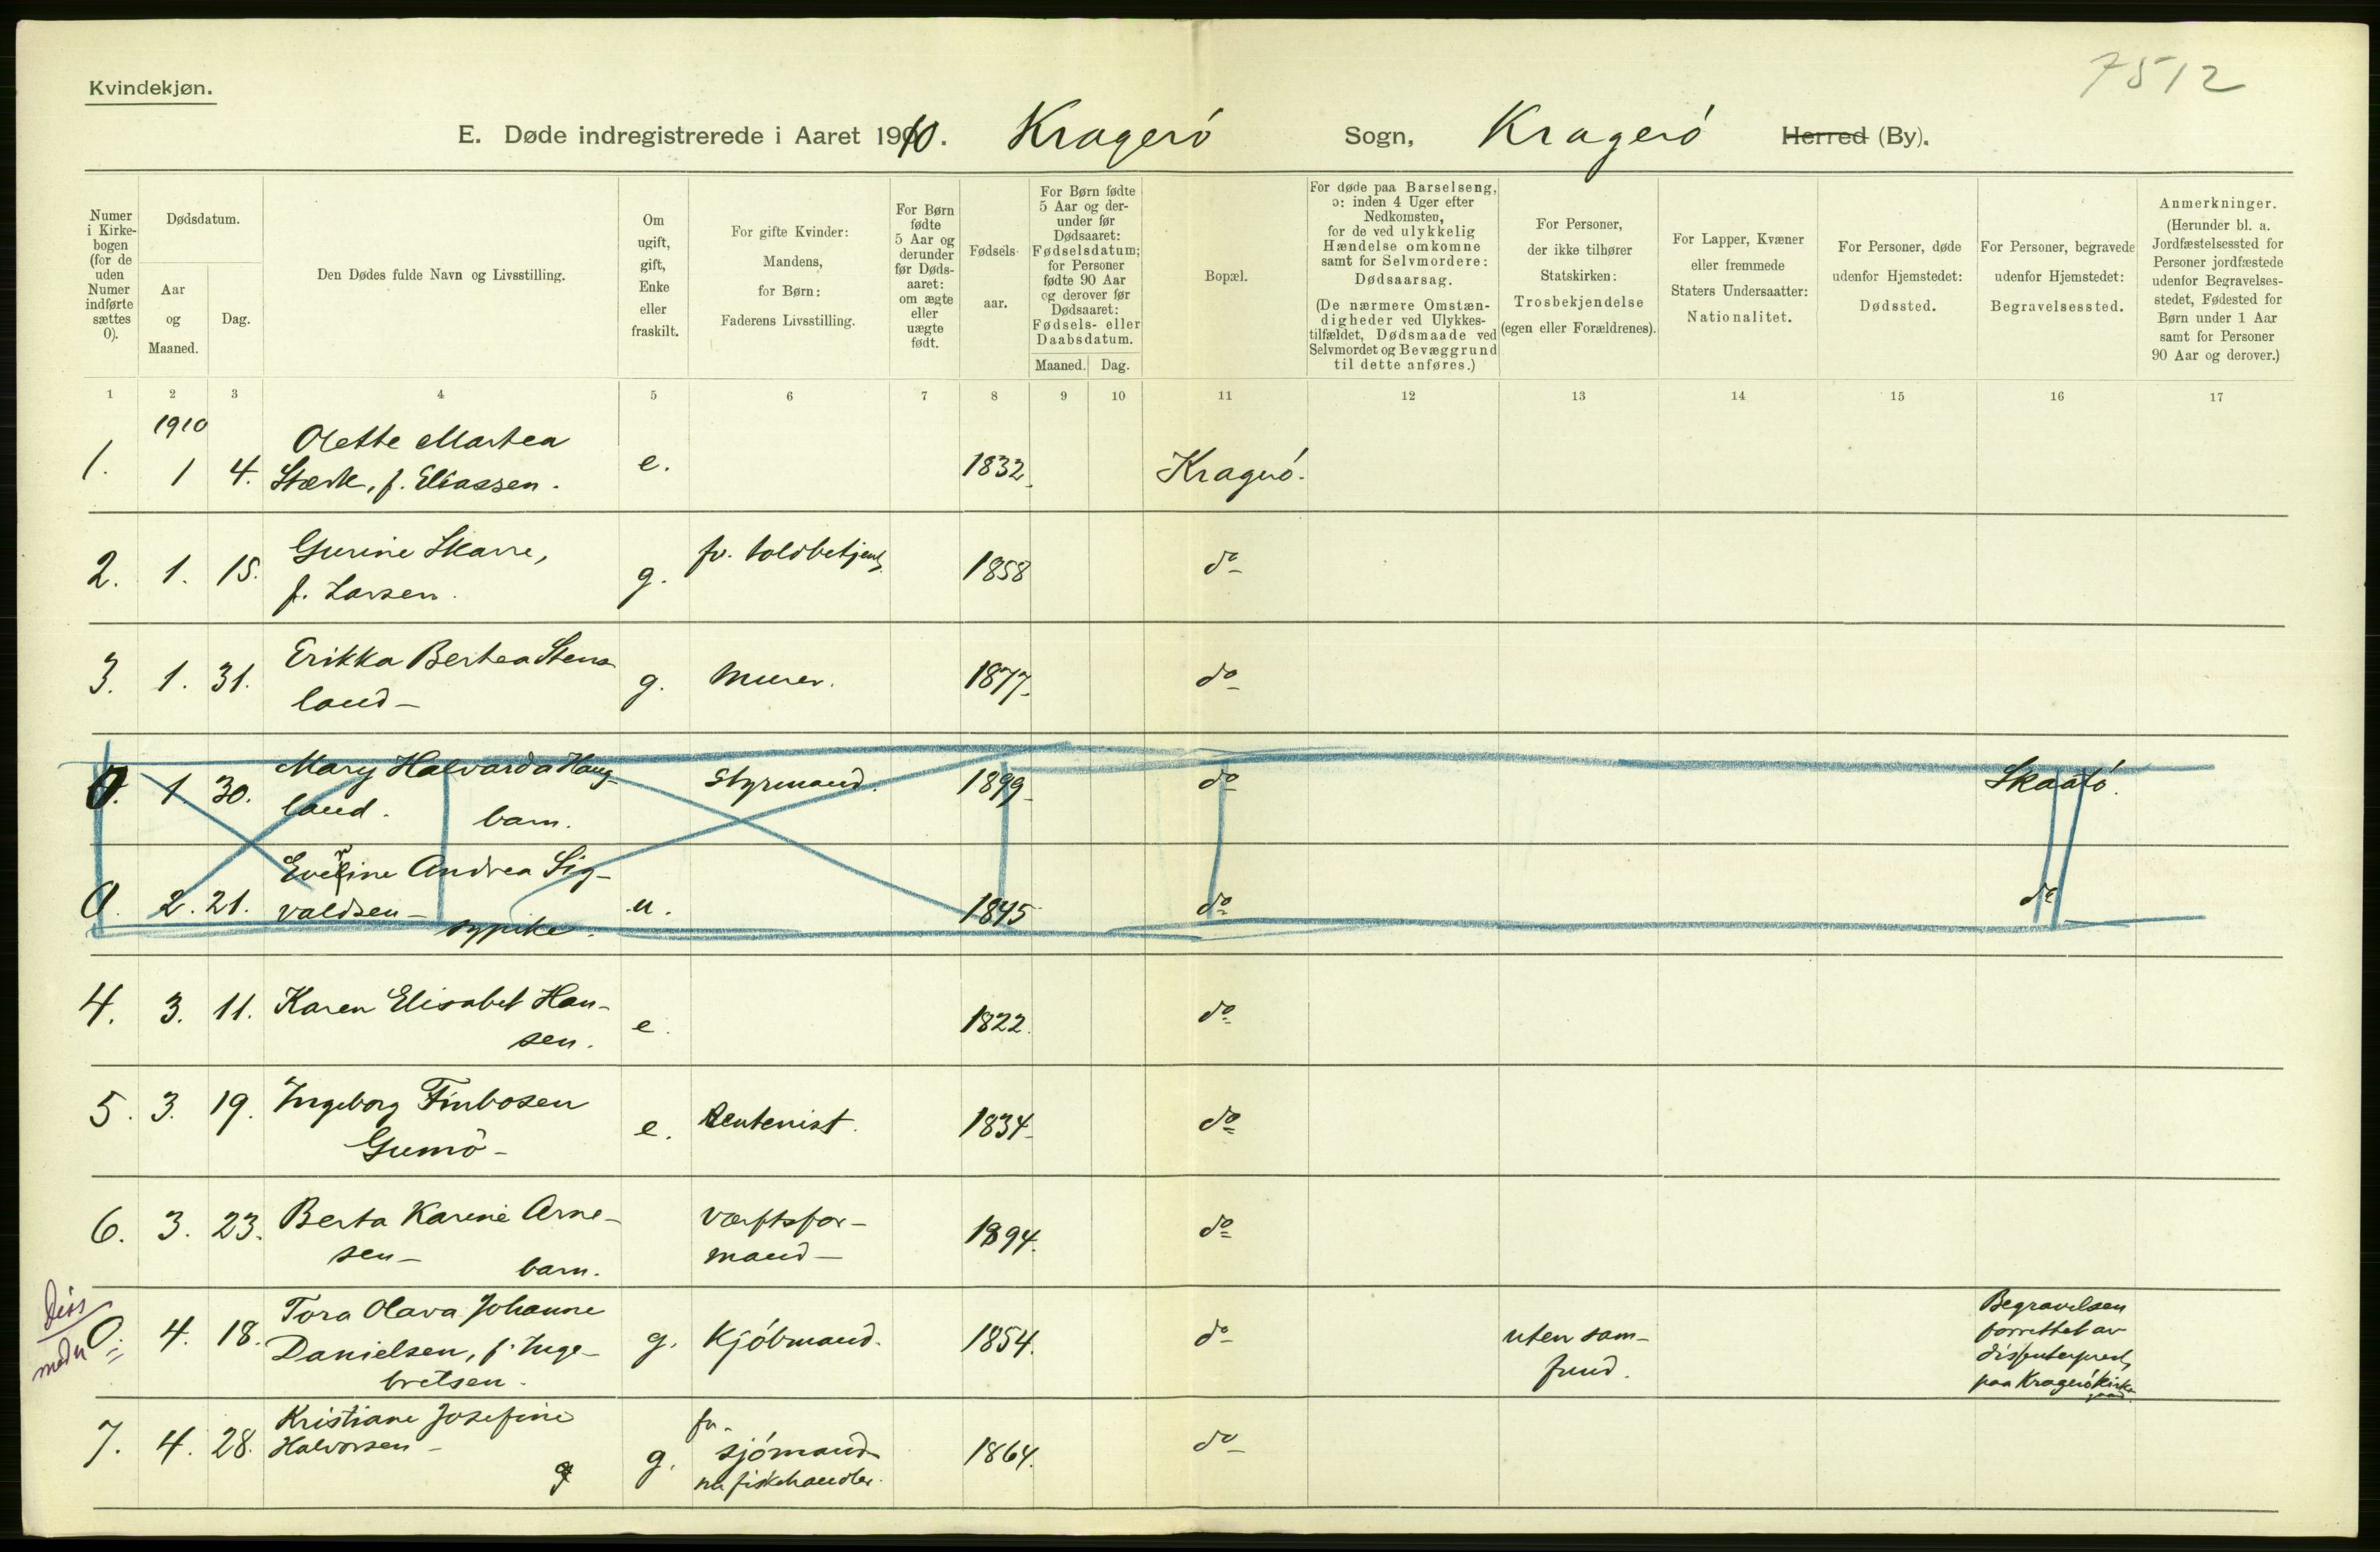 7512
Kvindekjøn.
E. Døde indregistrerede i Aaret 1910. Kragerö Sogn, Kragerö Herred (By).
Numer i Kirkebogen (for de uden Numer indførte sættes 0).
Dødsdatum.
Aar og Maaned.
Dag.
Den Dødes fulde Navn og Livsstilling.
Om ugift, gift, Enke eller fraskilt.
For gifte Kvinder: Mandens, for Børn: Faderens Livsstilling.
For Børn fødte 5 Aar og derunder før Dødsaaret: om ægte eller uægte født.
Fødselsaar.
For Børn fødte 5 Aar og derunder før Dødsaaret: Fødselsdatum; for Personer fødte 90 Aar og derover før Dødsaaret: Fødsels- eller Daabsdatum.
Maaned. Dag.
Bopæl.
For døde paa Barselseng, ɔ: inden 4 Uger efter Nedkomsten, for de ved ulykkelig Hændelse omkomne samt for Selvmordere: Dødsaarsag.
(De nærmere Omstændigheder ved Ulykkestilfældet, Dødsmaade ved Selvmordet og Bevæggrund til dette anføres.)
For Personer, der ikke tilhører Statskirken: Trosbekjendelse (egen eller Forældrenes).
For Lapper, Kvæner eller fremmede Staters Undersaatter: Nationalitet.
For Personer, døde udenfor Hjemstedet: Dødssted.
For Personer, begravede udenfor Hjemstedet: Begravelsessted.
Anmerkninger.
(Herunder bl. a. Jordfæstelsessted for Personer jordfæstede udenfor Begravelsesstedet, Fødested for Børn under 1 Aar samt for Personer 90 Aar og derover.)
1 2 3 4 5 6 7 8 9 10 11 12 13 14 15 16 17
1910
Olette Martea
1. 1 4. Stærk, f. Eliassen. e. 1832. Kragerö.
Gurine Skarre, fv. toldbetjent
2. 1. 15. f. Larsen. g. 1858 do
Erikka Bertea Stens
3. 1. 31. land- g. Murer. 1877. do
Mary Halvarda Haug-
0. 1. 30. land. barn. Styrmand. 1899. do Skaatö.
Eveline Andrea Sig-
0. 2. 21. valdsen- u. 1845 do do
sypike.
4. 3. 11. Karen Elisabet Han-
sen. e. 1822. do
5. 3. 19. Ingeborg Finbosen
Gumö- e. Rentenist. 1834. do
6. 3. 23. Berta Karine Arne-
sen- barn. Værftsfor-
mand- 1894. do
Diss
meder
Tora Olava Johanne
0. 4. 18. Danielsen, f. Inge-
bretsen. g. Kjöbmand. 1854. do
uten sam-
fund.
Begravelsen
forrettet av
dissenterprest
paa Kragerö kirke
Kristiane Josefine
7. 4. 28. Halvorsen- g. fv.
sjömand
nu fiskehandler. 1864. do